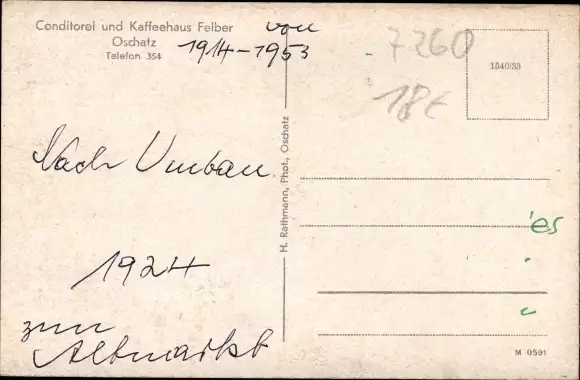 Conditorei und Kaffeehaus Felber
Oschatz
Telefon 354
von
1914-1953
Nach Umbau
1924
zum
Altmarkt
H. Rathmann, Phot., Oschatz
7260
18€
1540/33
es
M 0591